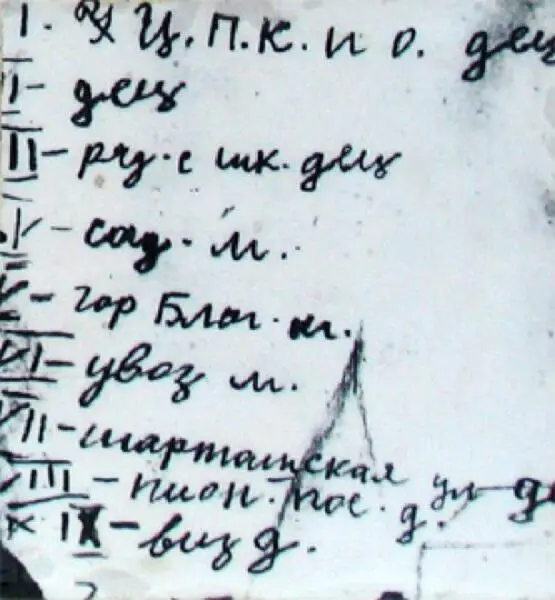 1. Ц.П.К. и О. дец
I - дец
II - ряд. с шк. дец
- сад. м.
V - гор Благ. м.
VI - увоз м.
VII - шарташская ул
VIII - пион. пос. д.
IX - виз д.